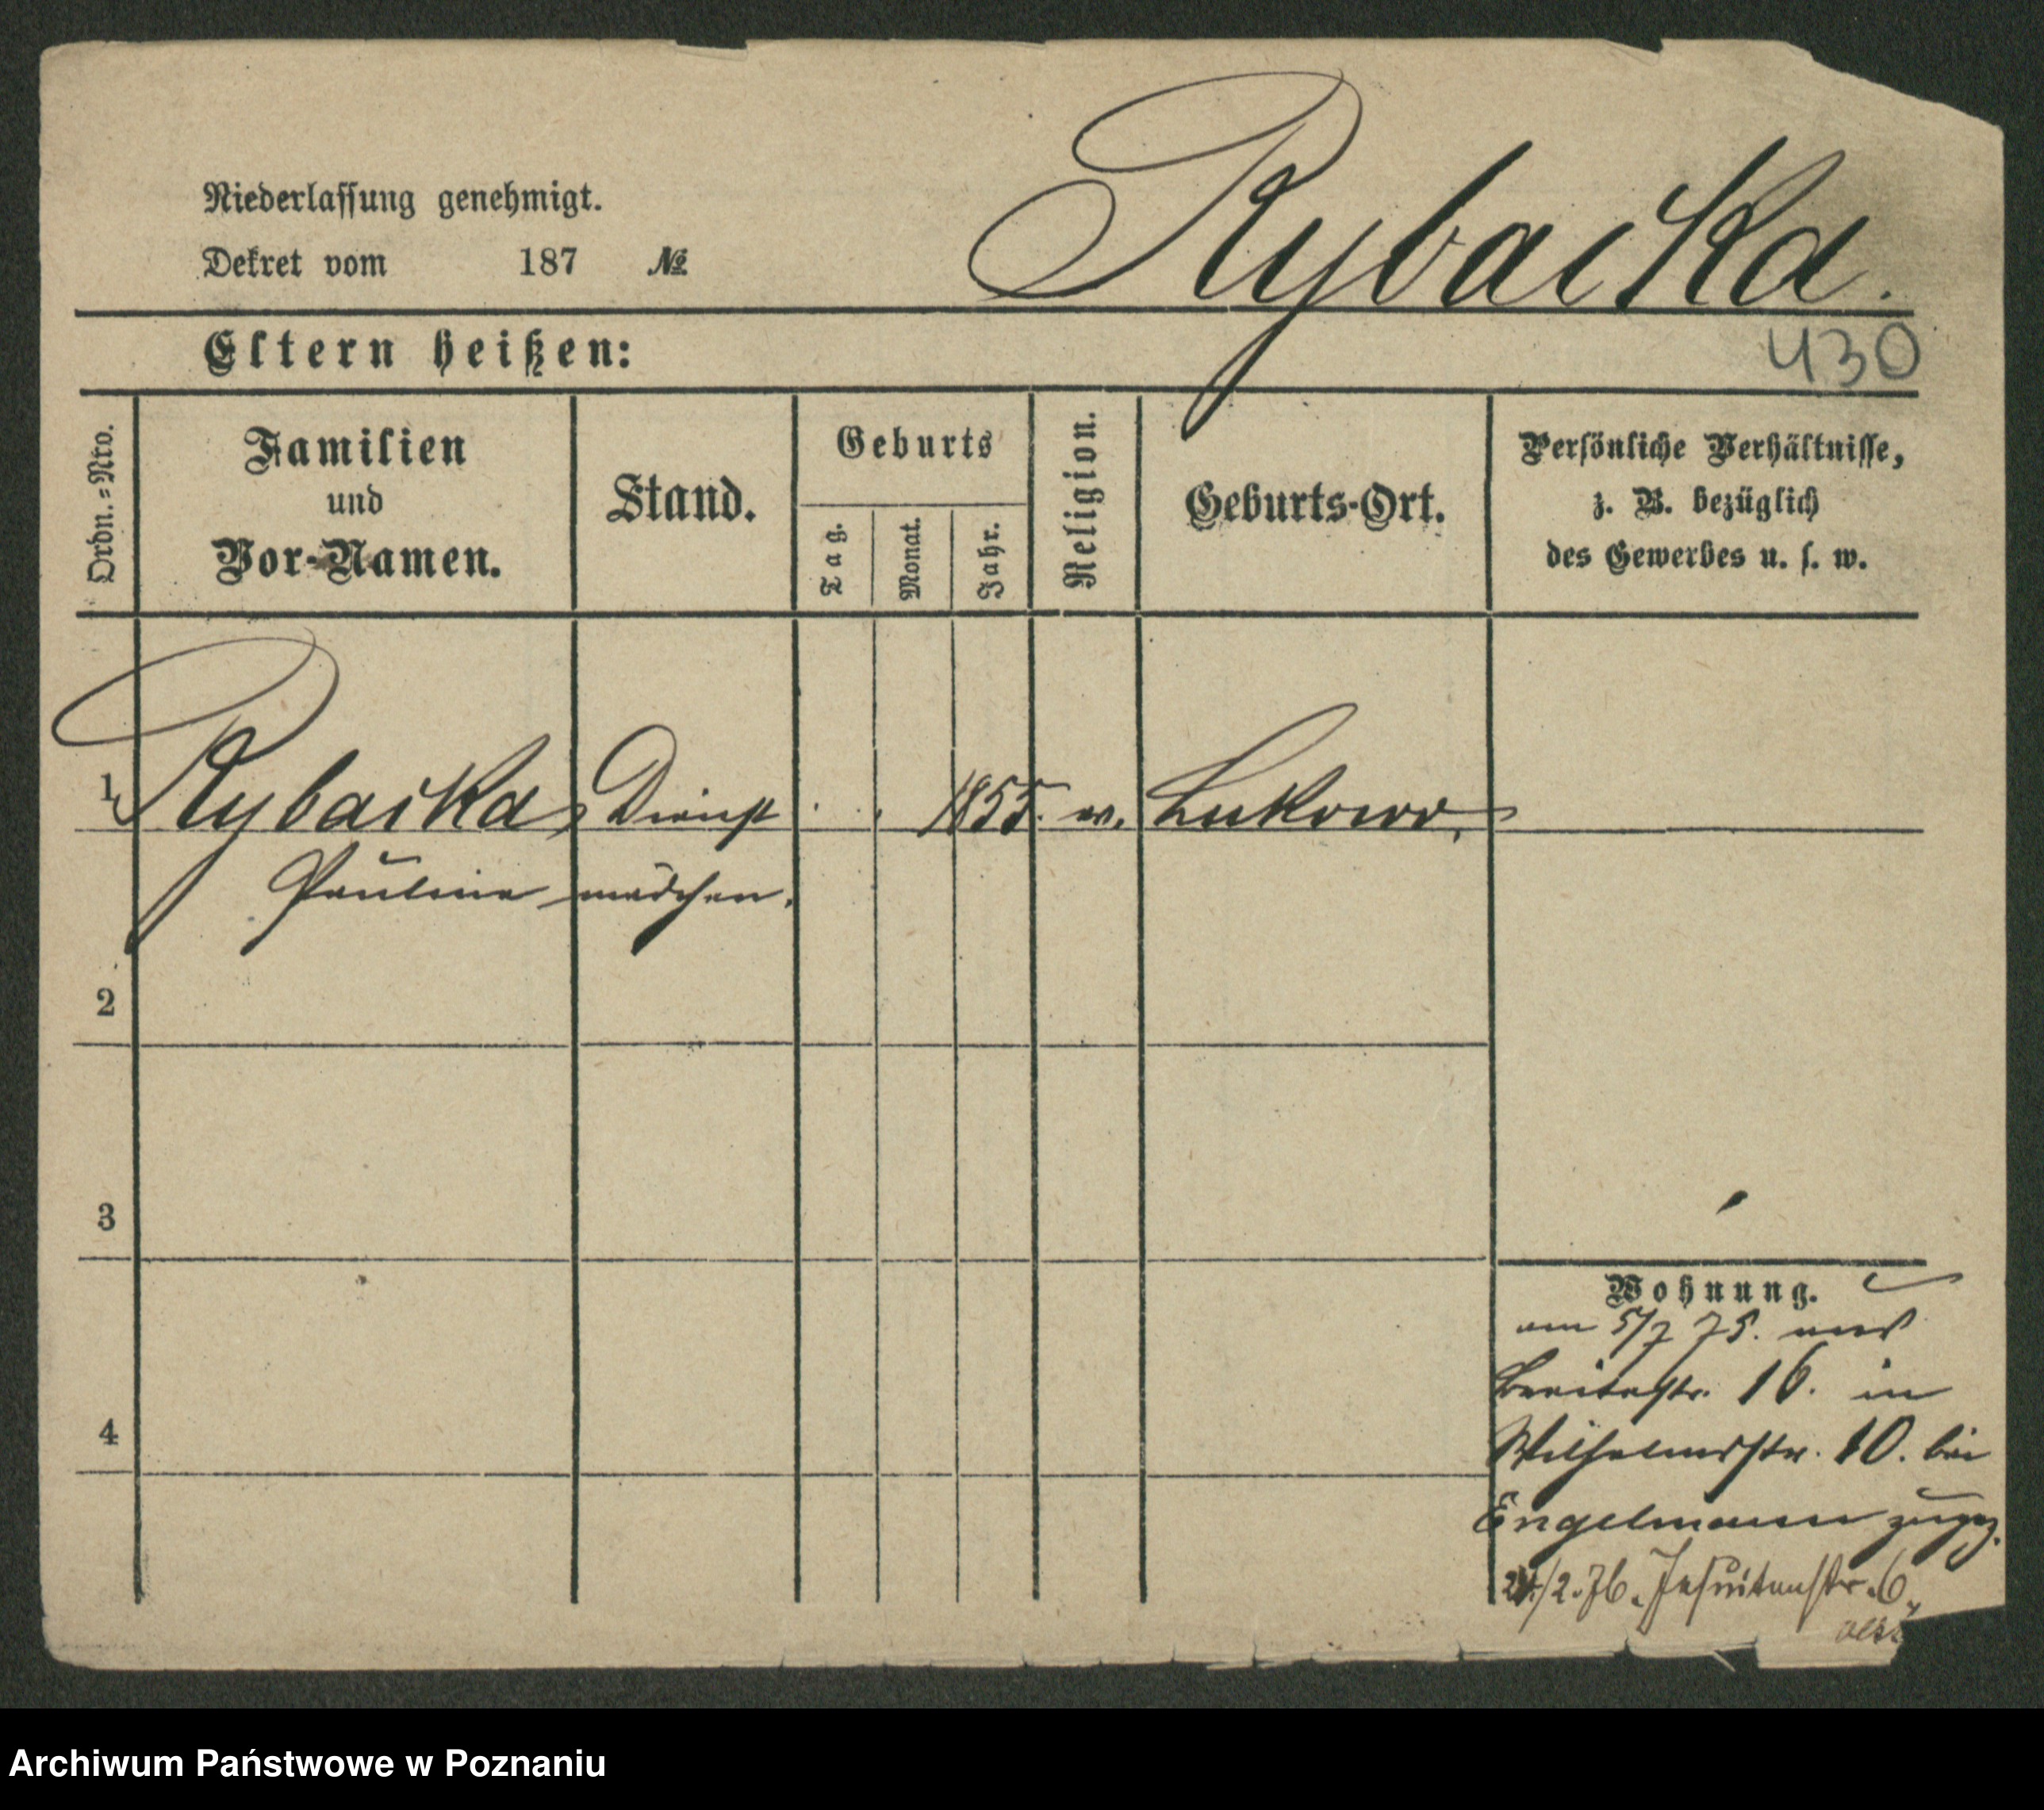 Niederlassung genehmigt.
Dekret vom 187 №
Rybacka.
Eltern heißen:
430
Ordn.=Nro.
Familien
und
Vor-Namen.
Stand.
Geburts
Tag.
Monat.
Jahr.
Religion.
Geburts-Ort.
Persönliche Verhältnisse,
z. B. bezüglich
des Gewerbes u. s. w.
1 Rybacka Dienst 1855. Lukowo.
Pauline mädchen.
2
3
Wohnung.
am 5/7 75. aus
Breitestr. 16. in
4
Wilhelmsstr. 10. bei
Engelmann zugez.
2/2.76. Jesuitenstr. 6.
Archiwum Państwowe w Poznaniu